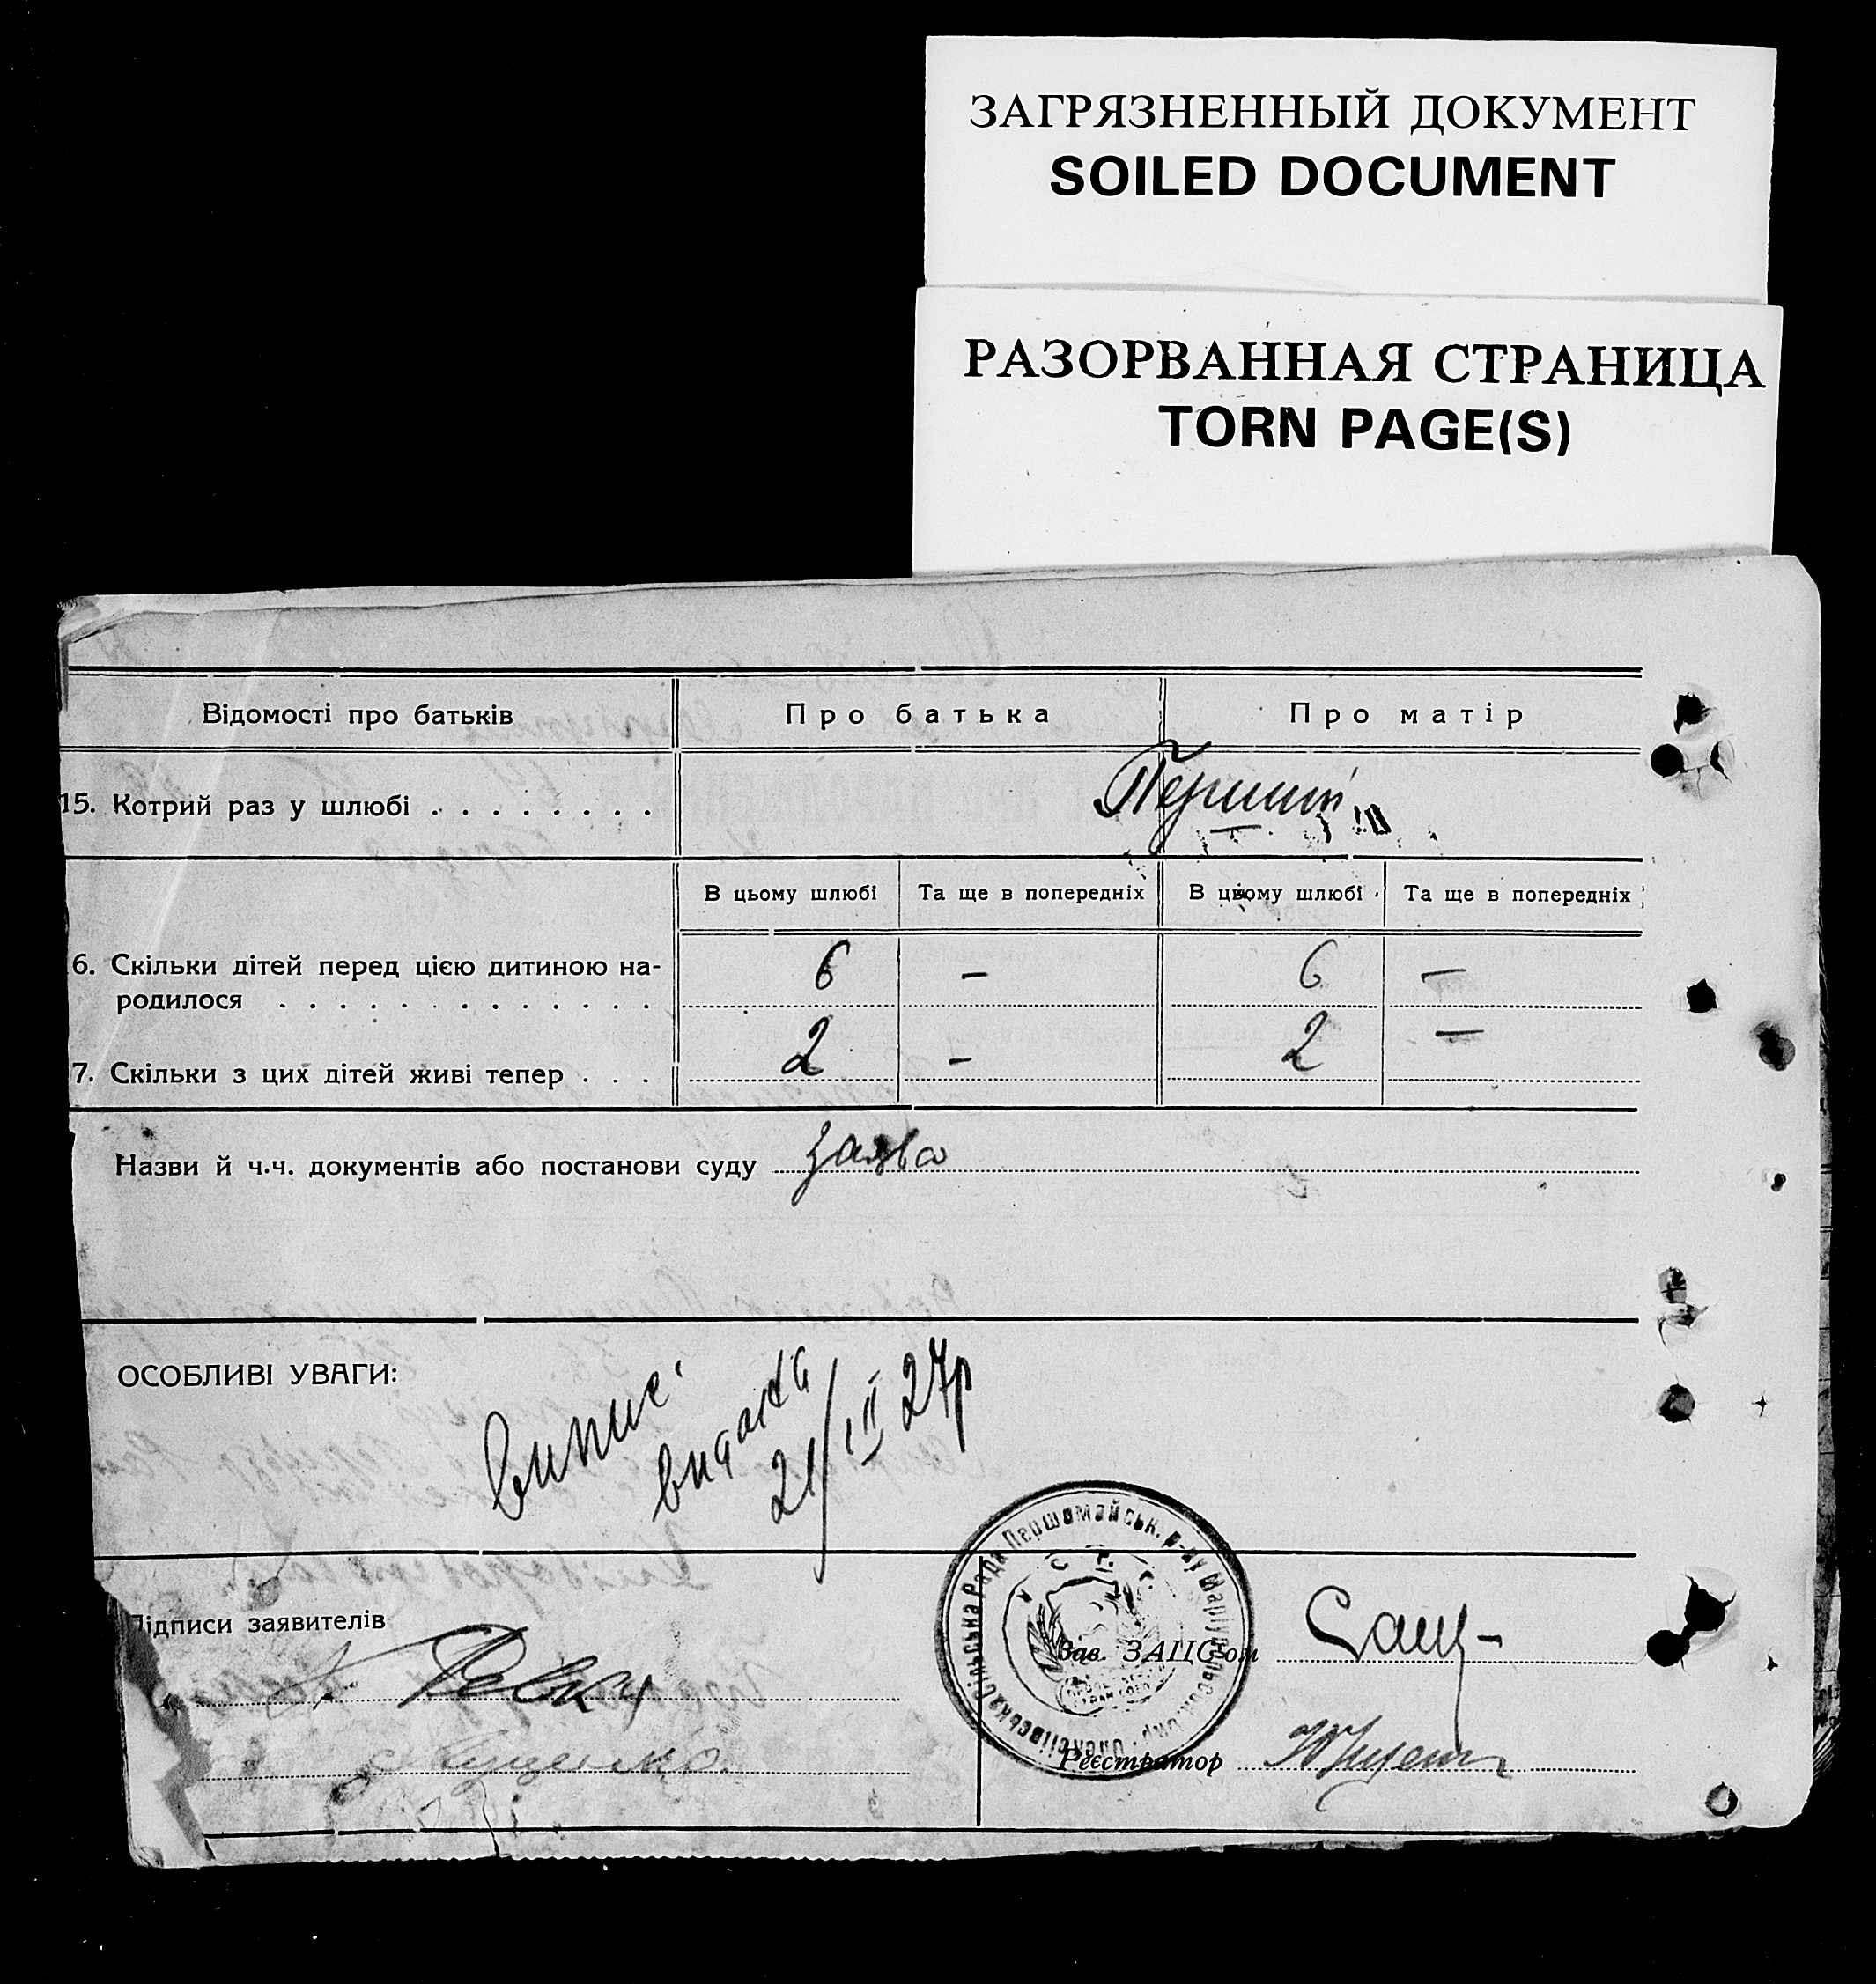 ЗАГРЯЗНЕННЫЙ ДОКУМЕНТ
SOILED DOCUMENT
РАЗОРВАННАЯ СТРАНИЦА
TORN PAGE(S)
Відомості про батьків Про батька Про матір
15. Котрий раз у шлюбі . . . . . . . . Перший
В цьому шлюбі Та ще в попередніх В цьому шлюбі Та ще в попередніх
6. Скільки дітей перед цією дитиною на- 6 – 6 –
родилося . . . . . . . . . . . . .
7. Скільки з цих дітей живі тепер . . . 2 – 2 –
Назви й ч.ч. документів або постанови суду заява
ОСОБЛИВІ УВАГИ:
Випис
видана
21/III 27р
Підписи заявителів
Зав. ЗАЦСом
Реєстратор
Олексіївська Сільська Рада Першомайськ. р-ну Маріупольськ. Окр.